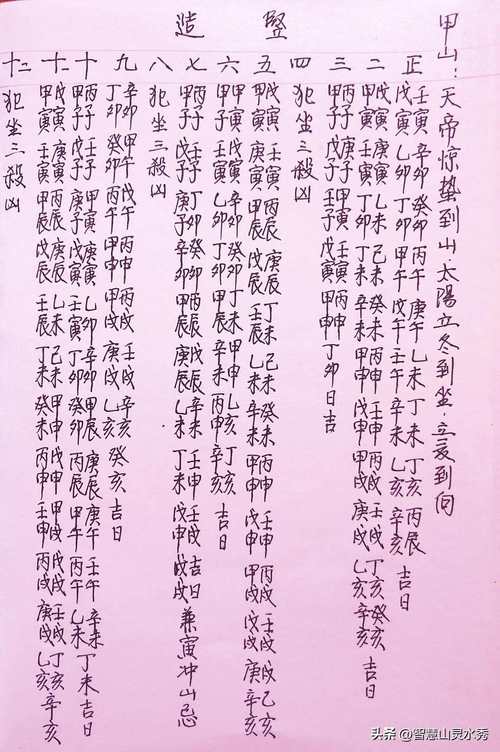 竪造
甲山:天帝惊蛰到山.太陽立冬到坐.立夏到向
正 壬寅 辛卯 癸卯 丙午 庚午 乙未 丁未 丁亥 丙辰
戊寅 乙卯 丁卯 甲午 戊午 壬午 辛未 乙亥 辛亥 吉日
二 戊寅 庚寅 乙未 己未 癸未 丙申 壬申 丙戌 壬戌 丁亥 癸亥 吉日
甲寅 壬寅 丁未 辛未 甲申 戊申 甲戌 庚戌 乙亥 辛亥
三 丙子 庚子 甲寅 壬寅 丙申 丁卯日吉
甲子 壬子 戊寅 甲申
四 犯坐三殺凶
五 戊寅 壬寅 丙辰 庚辰 丁未 癸未 壬申 丙戌 戊戌 壬戌 乙亥
甲寅 庚寅 甲辰 戊辰 乙未 辛未 甲申 丙申 戊申 甲戌 庚戌 辛亥
六 甲寅 戊寅 辛卯 癸卯 丁未 甲申 乙亥 辛亥 吉日
甲子 壬寅 乙卯
七 丙子 壬子 丁卯 癸卯 辛未 壬申 戊戌 吉日 兼寅冲山忌
甲子 戊子 庚子 辛卯 甲辰 庚辰 乙未 丁未 戊申
八 犯坐三殺凶
九 辛卯 甲午 戊午 丙申 丙戌 壬戌 辛亥
丁卯 癸卯 丙午 甲申 庚戌 乙亥 癸亥 吉日
十 丙子 壬子 甲寅 庚寅 乙卯 辛卯 甲辰 庚辰 庚午 壬午 辛未 丁未 吉日
甲子 庚子 戊寅 壬寅 丁卯 癸卯 甲午 丙午 乙未
十二 戊寅 庚寅 丙辰 庚辰 乙未 己未 甲申 戊申 甲戌 戊戌 壬戌 丁亥 辛亥
甲寅 壬寅 甲辰 戊辰 壬辰 丁未 癸未 丙申 壬申 丙戌 庚戌 乙亥
十二 犯坐三殺凶
头条 @智慧山灵水秀